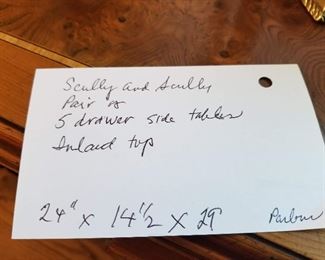 Scully and Scully
Pair of
5 drawer side tables
Inlaid top
24" x 14 1/2 x 29
Parlour